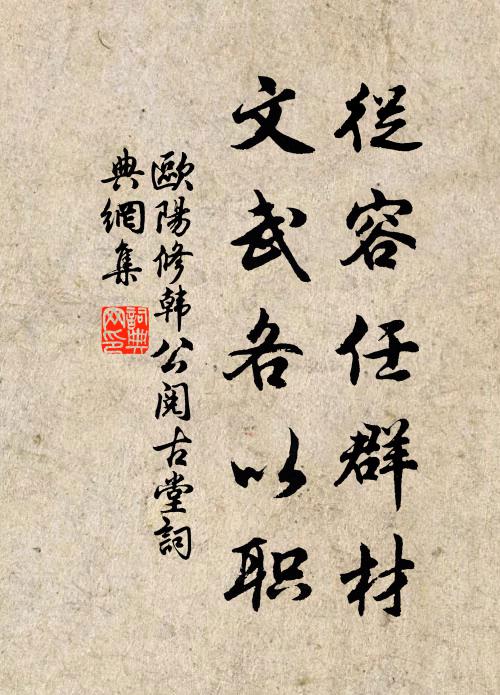 從容任群材
文武各以职
歐陽修韩公阅古堂詞
典網集
詞典
网印